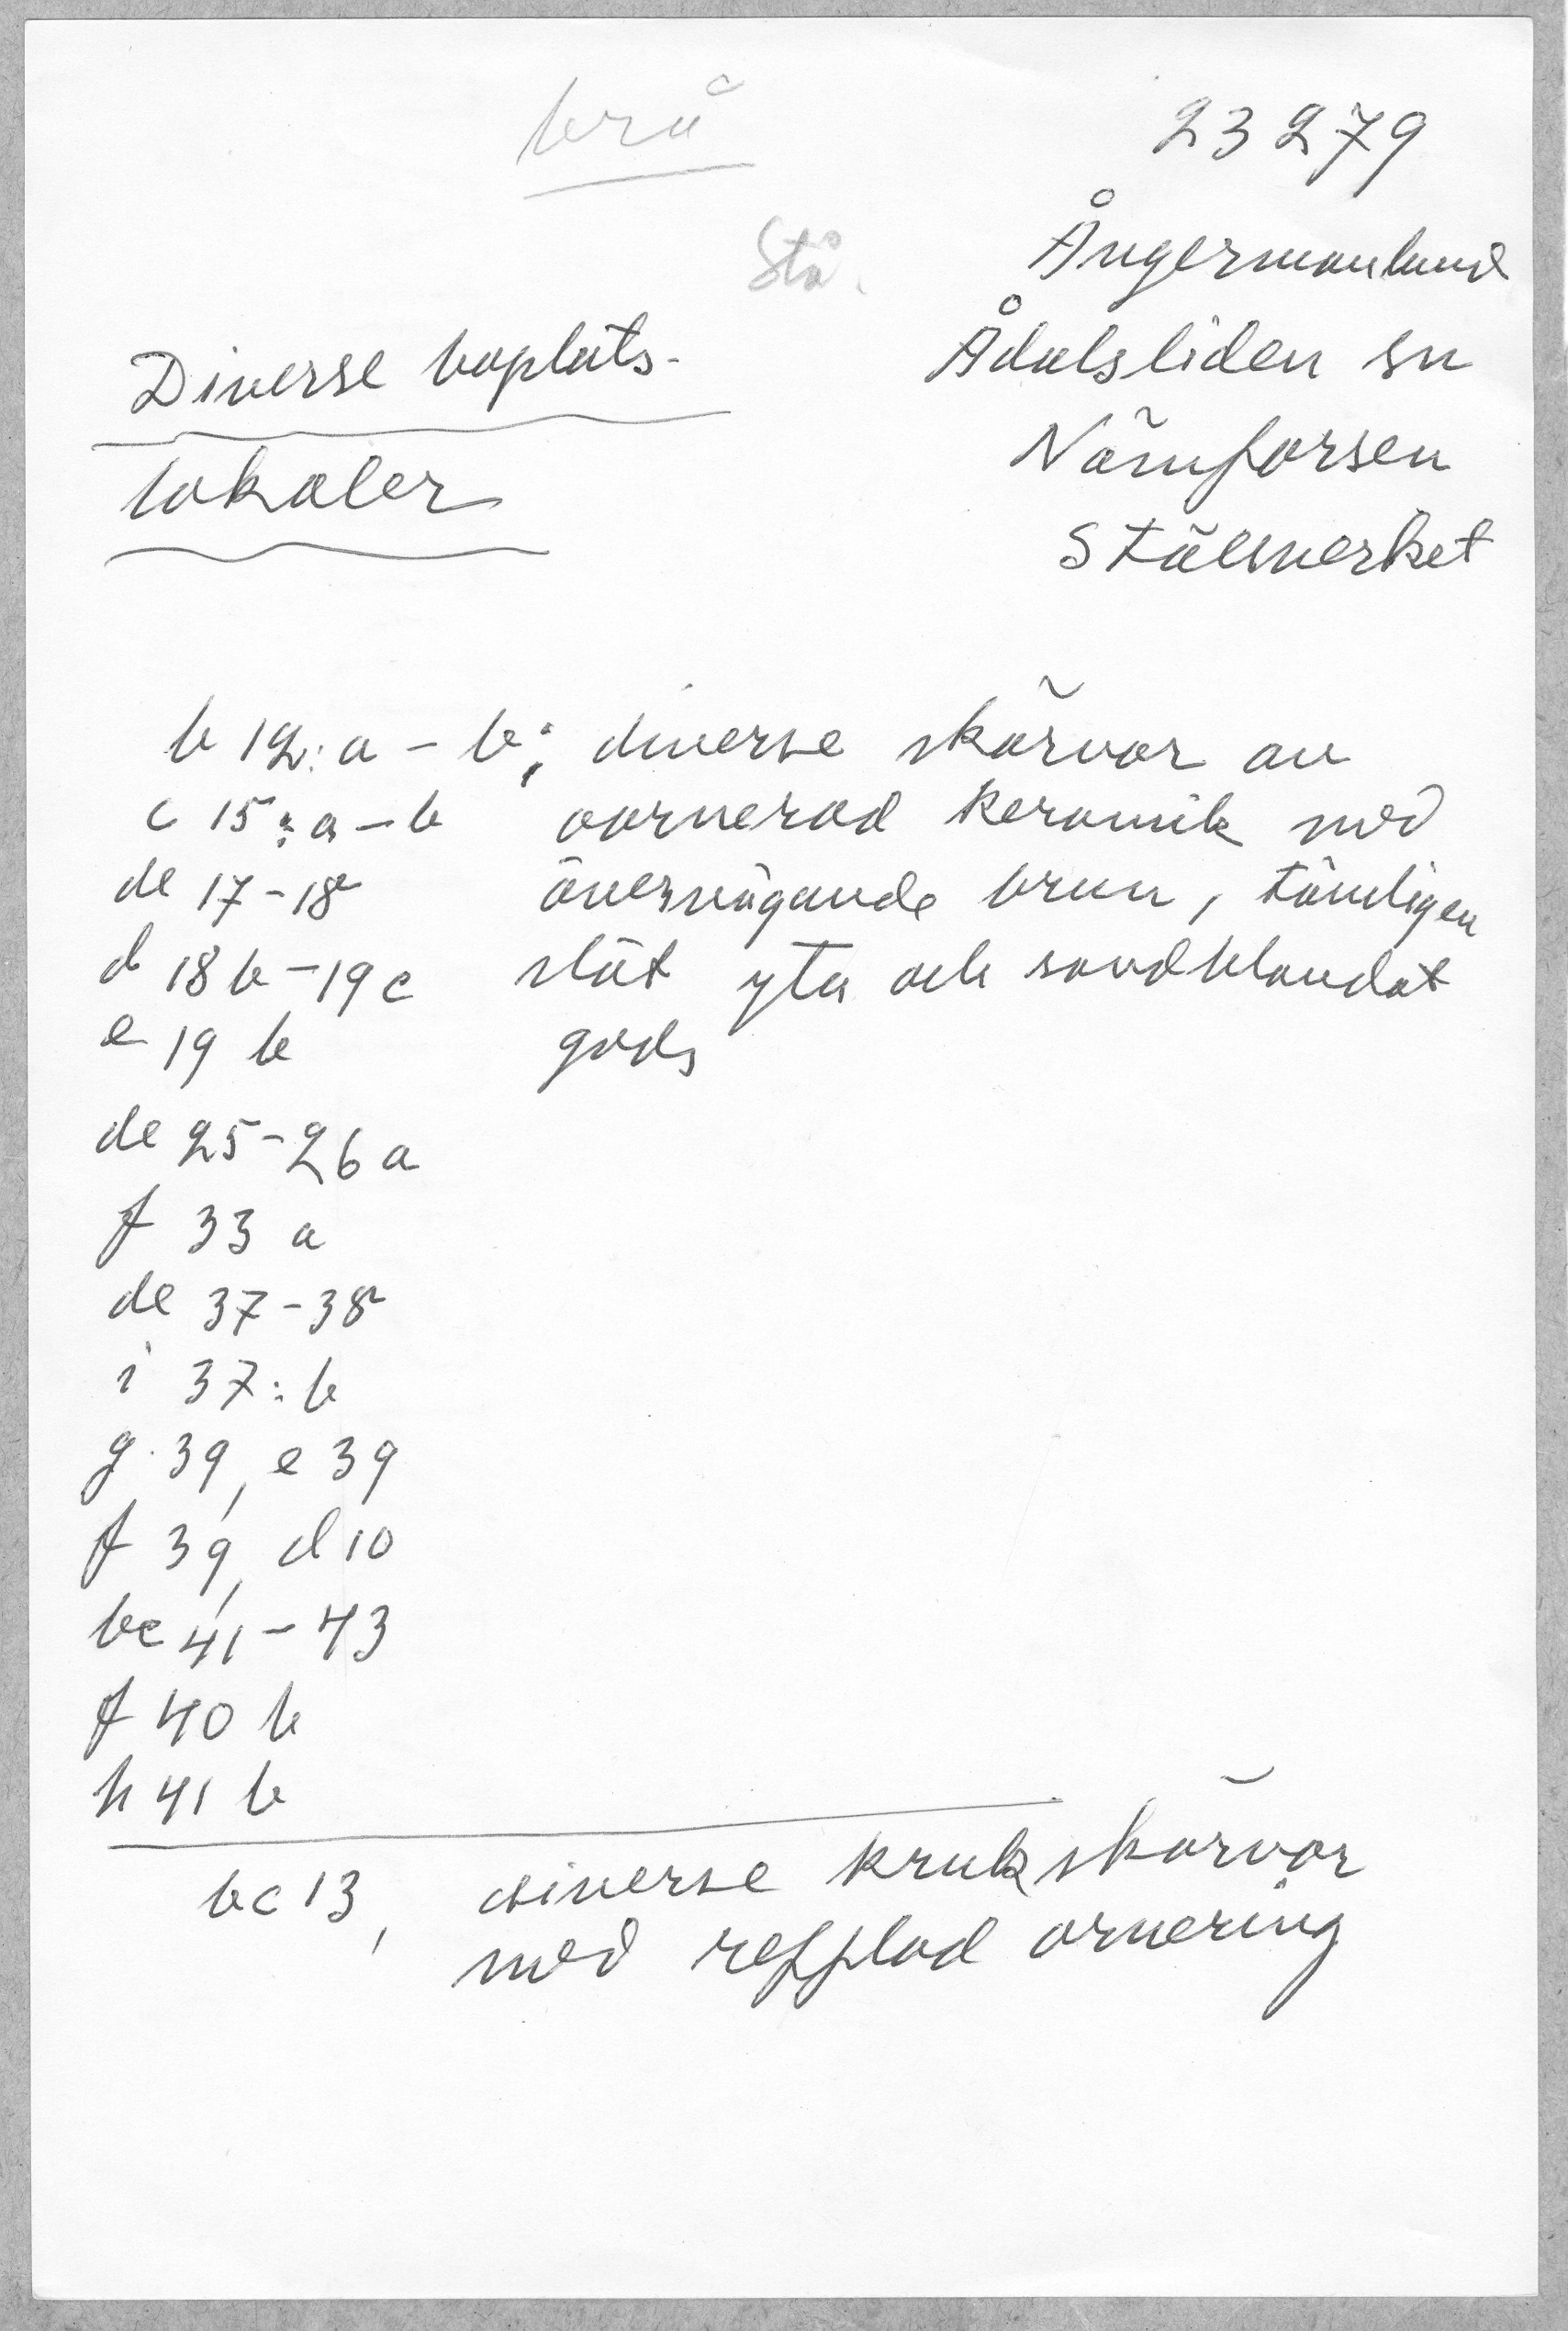 brå
23279
Stå.
Ångermanland
Ådalsliden sn
Nämforsen
Stålverket
Diverse boplats-
lokaler
b 12:a - b; diverse skärvor av
c 15:a - b oornerad keramik med
de 17-18 övervägande brun, tämligen
d 18 b - 19 c slät yta och sandblandat
e 19 b gods
de 25-26 a
f 33 a
de 37-38
i 37:b
g 39, e 39
f 39, d 10
bc 41-43
f 40 b
h 41 b
bc 13, diverse krukskärvor
med refflad ornering